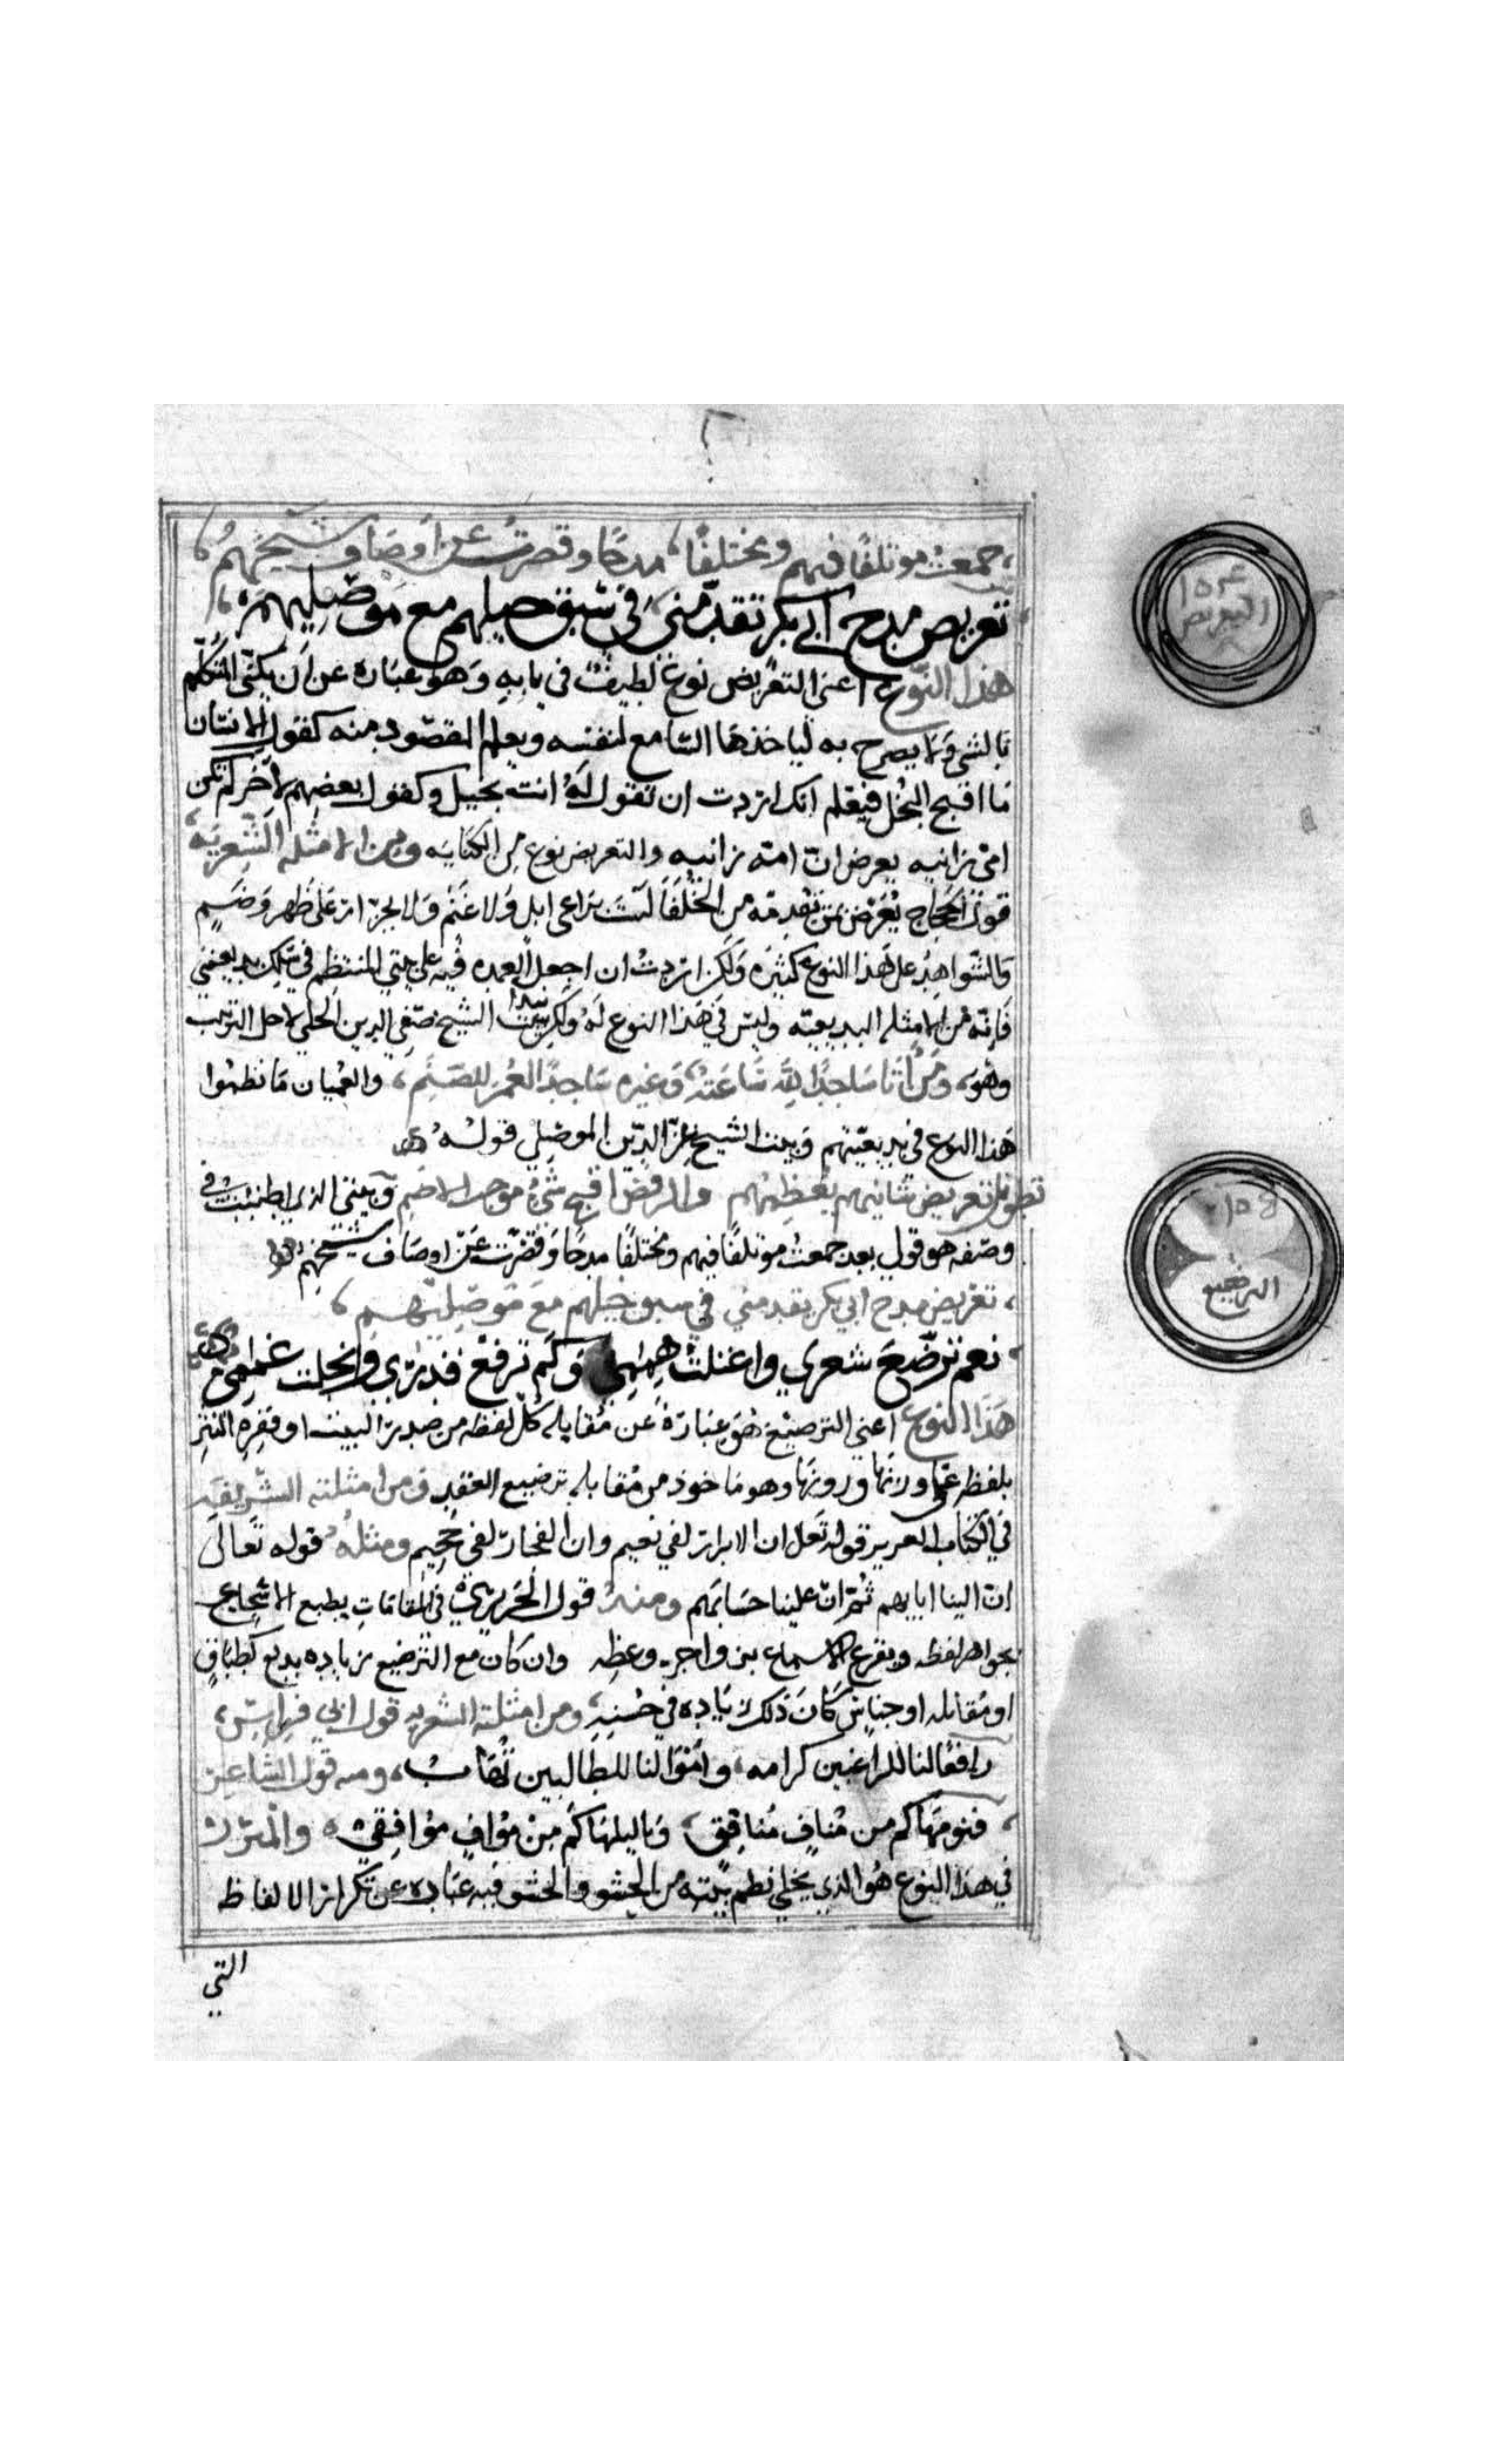 جمعت موتلفًا فيهم ومختلفًا مدحًا وقصرت عن اوصاف شيخهم
تعريض مدح ابي بكر تقدمني في سبق حيلهم مع موصليهم
هذا النوع اعني التعريض نوع لطيف في بابه وهو عباره عن ان يكنى المتكلم
بالشي ولا يصرح به لياخذها السامع لنفسه ويعلم المقصود منه كقول الانسان
ما اقبح البخل فيعلم انك اردت ان تقول له انت بخيل وكقول بعضهم لاخر لم تكن
امى زانيه يعرض ان امه زانيه والتعريض نوع من الكنايه ومن الامثله الشعريه
قول الحجاج يعرض بمن تقدمه من الخلفا لست براعى ابل ولا غنم ولا بجزار على ظهر وضم
والشواهد على هذا النوع كثيره ولكن اردت ان اجعل العمده فيه على بيتي المنتظم في سلك بديعيتي
فانه من الامثله البديعيه وليس في هذا النوع له ولكن بيت الشيخ صفي الدين الحلي لاجل الترتيب
وهو ومن اتا ساجدًا لله ساعته وغيره ساجد العمر للصنم والعميان ما نظموا
هذا النوع في بديعيتهم وبيت الشيخ عز الدين الموصلي قوله
تعريض شانيهم بعظمهم والرفض اقبح شي موجب الاضم وبيتي الذي اطنبت في
وصفه هو قولي بعد جمعت موتلفًا فيهم ومختلفًا مدحًا وقصرت عن اوصاف شيخهم
تعريض مدح ابي بكر تقدمني في سبق حيلهم مع موصليهم
نعم ترصع شعري واعتلت هممي وكم ترفع قدري وانجلت غممي
هذا النوع اعني الترصيع هو عبارة عن مقابله كل لفظه من صدر البيت او فقره النثر
بلفظه على وزنها ورويها وهو ماخوذ من مقابله ترصيع العقد ومن امثلته الشريفه
في الكتاب العزيز قوله تعالى ان الابرار لفي نعيم وان الفجار لفي جحيم ومثله قوله تعالى
ان الينا ايابهم ثم ان علينا حسابهم ومنه قول الحريري في المقامات يطبع الاسجاع
بجواهر لفظه ويقرع الاسماع بزواجر وعظه وان كان مع الترصيع زياده بديع كطباق
او مقابله او جناس كان ذلك زياده في حسنه ومن امثلته الشعريه قول ابي فراس
وافعالنا للراغبين كرامه واموالنا للطالبين نهاب ومنه قول الشاعر
فنومها كم من مناف منافق وياليلها كم من مواف موافق والمبرز
في هذا النوع هو الذي يخلي نظم بيته من الحشو والحشو فيه عباده عن تكرار الالفاظ
التي
التعريض
الترصيع